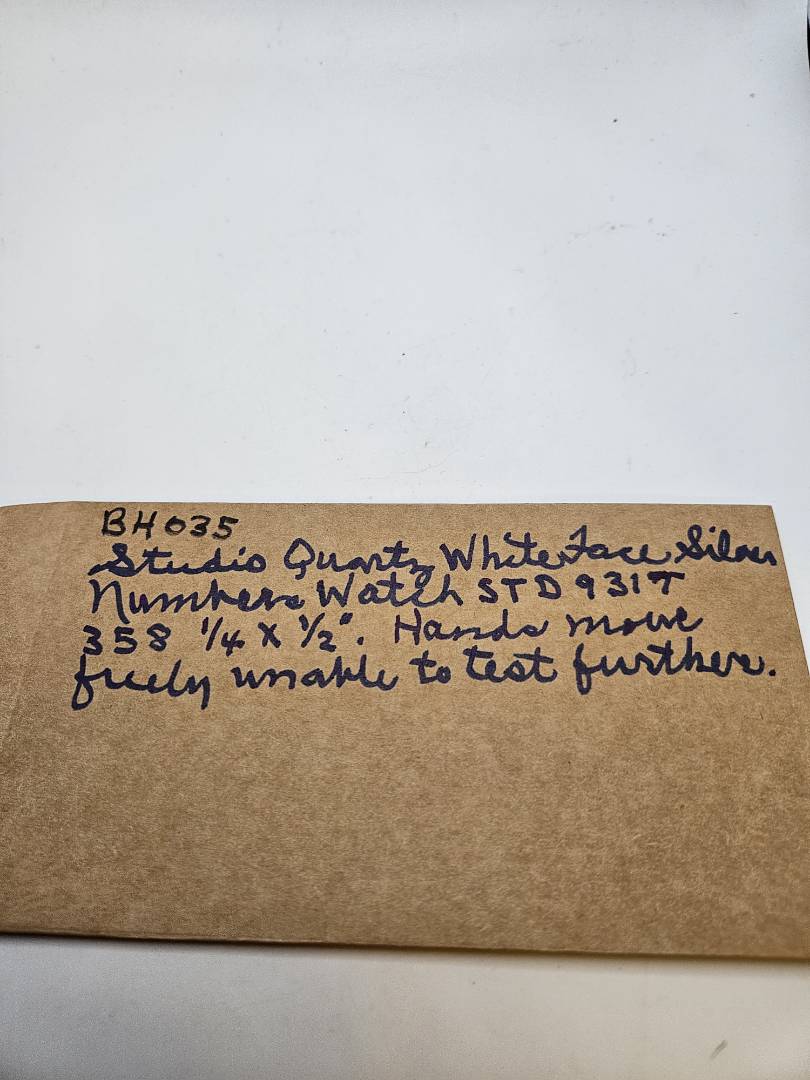 BH035
Studio Quartz White Face Silver
Numbers Watch STD 931T
358 1/4 x 1/2". Hands move
freely unable to test further.